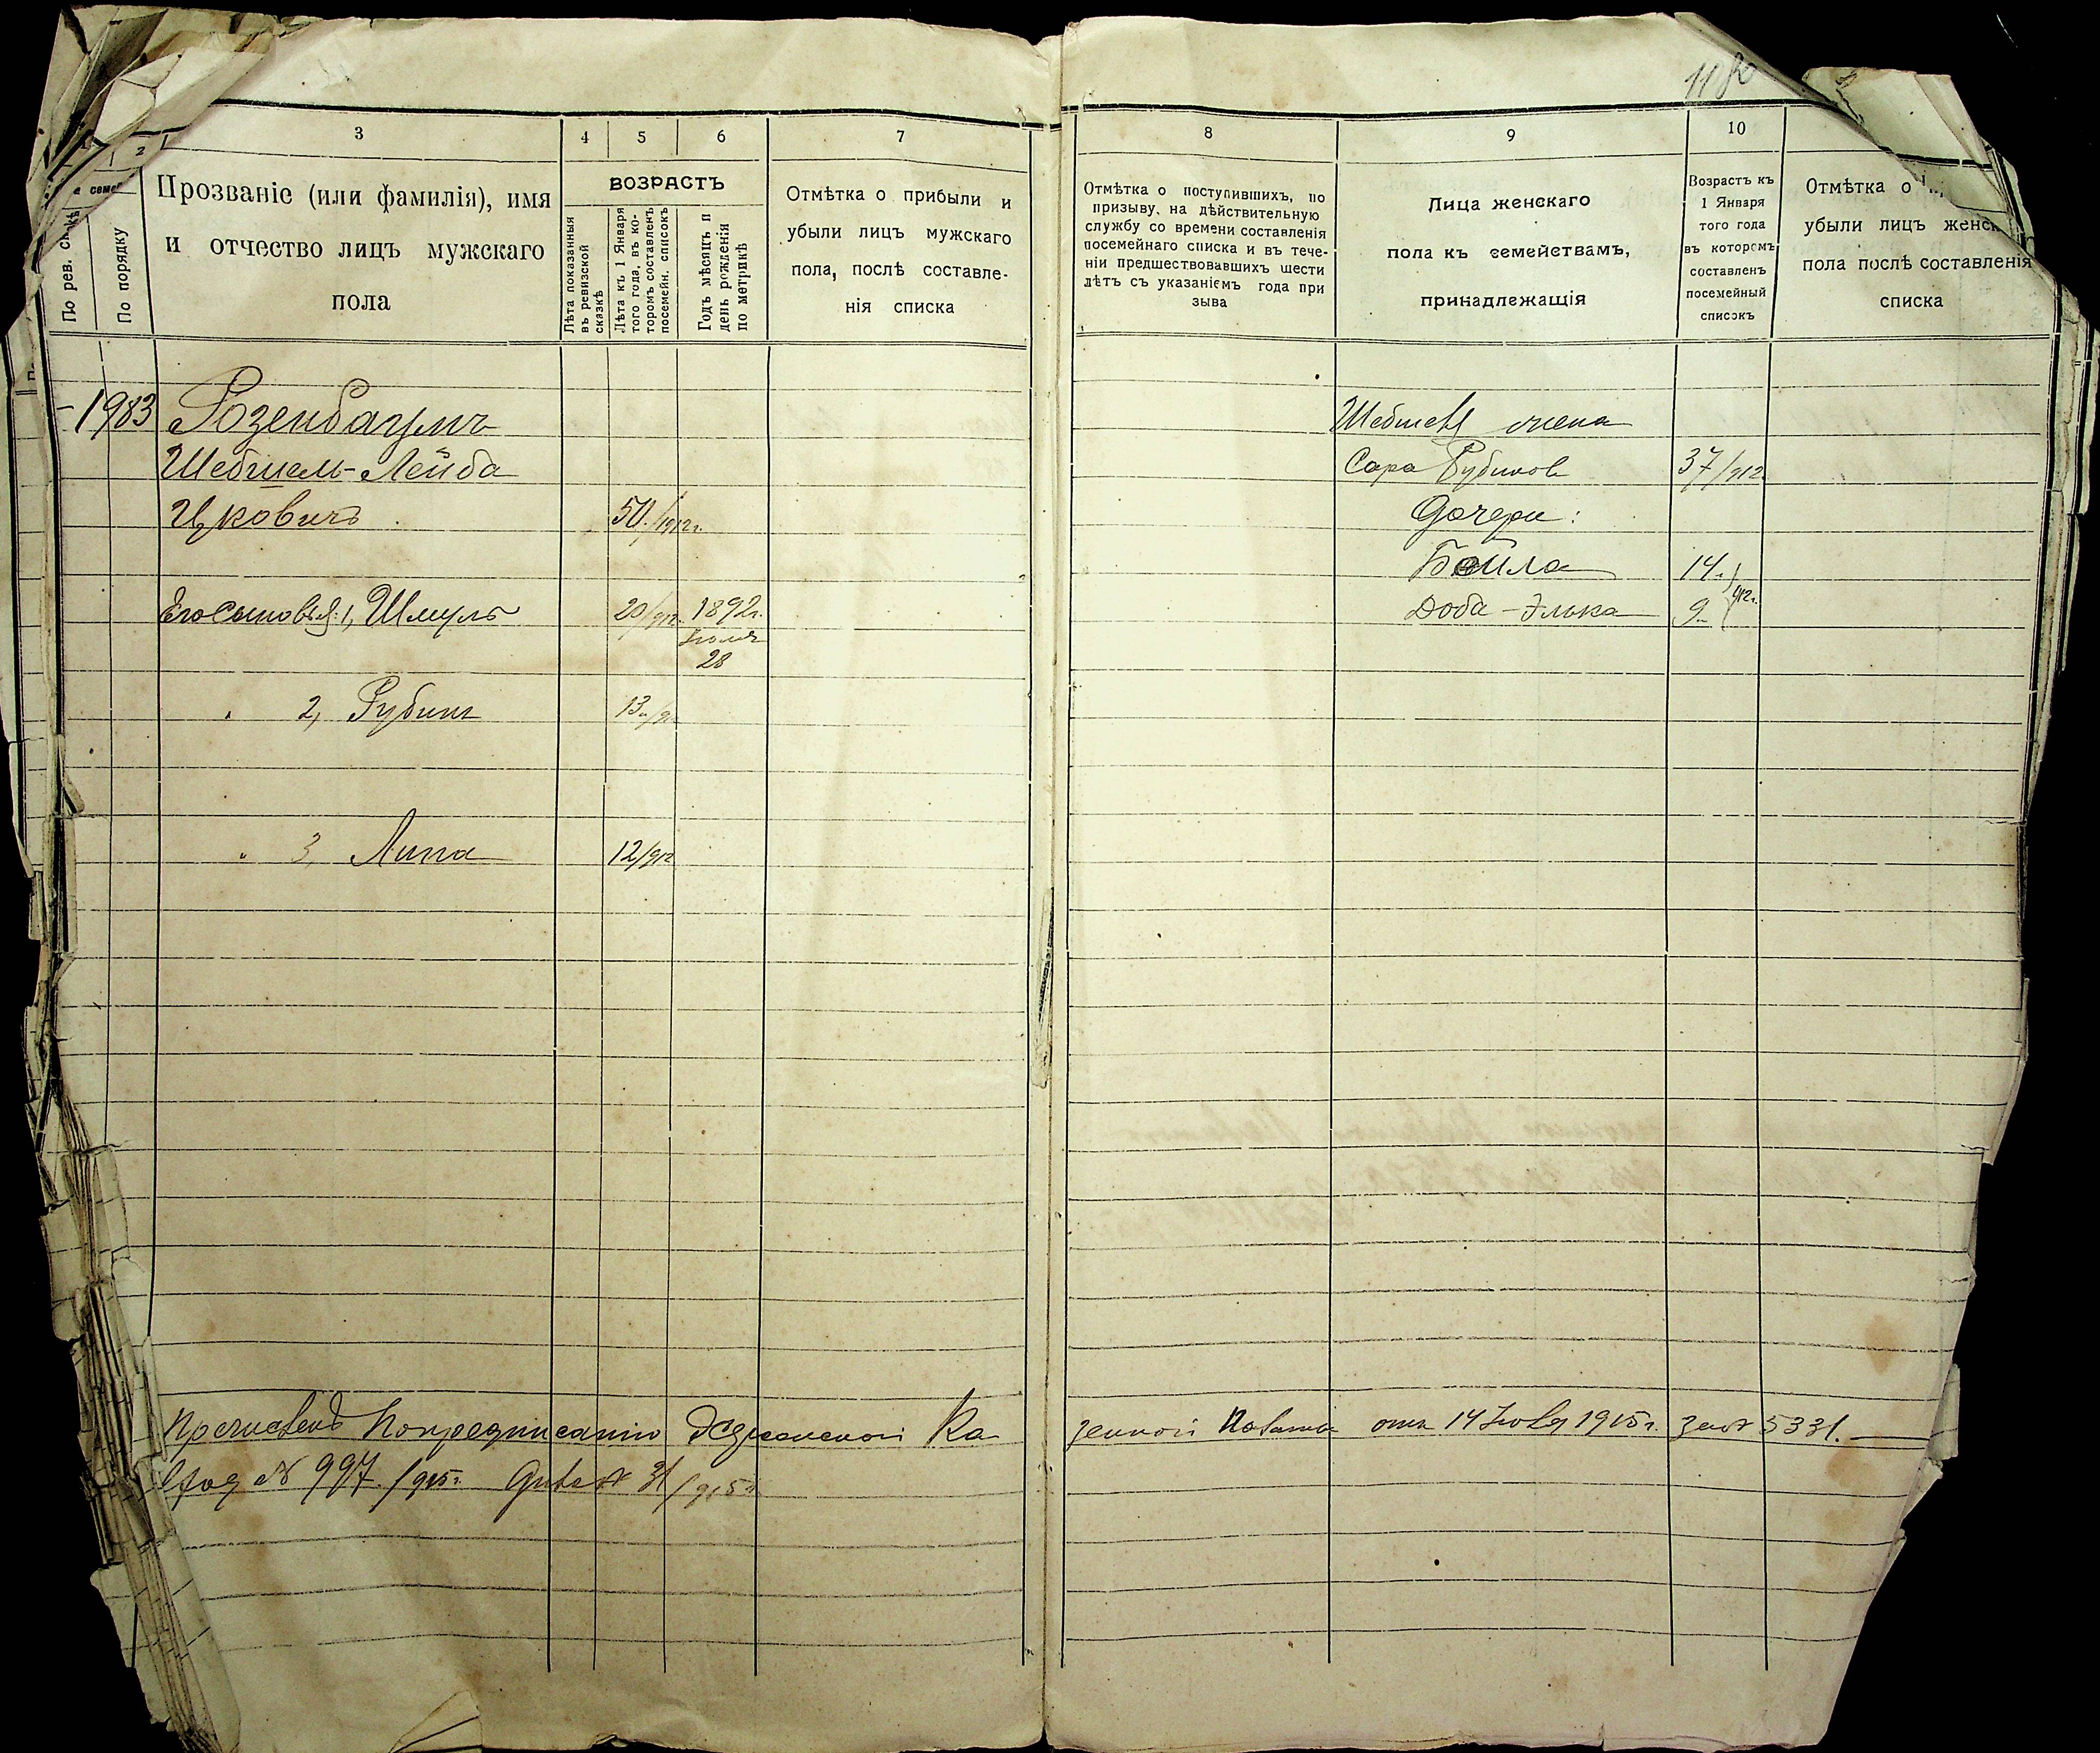 118
3
4
5
6
7
2
Прозваніе (или фамилія), имя
и отчество лицъ мужскаго
пола
По рев. ск
По порядку
ВОЗРАСТЪ
Лѣта показанныя
въ ревизской
сказкѣ
Лѣта къ 1 Января
того года, въ ко-
торомъ составленъ
посемейн. списокъ
Годъ мѣсяцъ и
день рожденія
по метрикѣ
Отмѣтка о прибыли и
убыли лицъ мужскаго
пола, послѣ составле-
нія списка
1983 Розенбаумъ
Шебшель-Лейба
Ицковичъ 50/1912г.
Его сыновья: 1, Шмуль 20/912 1892г.
28
" 2, Рубинъ 13/91
" 3, Липа 12/912
8
9
10
Отмѣтка о поступившихъ, по
призыву, на дѣйствительную
службу со времени составленія
посемейнаго списка и въ тече-
ніи предшествовавшихъ шести
лѣтъ съ указаніемъ года при
зыва
Лица женскаго
пола къ семействамъ,
принадлежащія
Возрастъ къ
1 Января
того года
въ которомъ
составленъ
посемейный
списокъ
Отмѣтка о
убыли лицъ женск
пола послѣ составленія
списка
Шебшеля жена
Сара Рубинов 37/912
Дочери:
Бейла 14
Доба-Элька 9 912г.
Причисленъ по предписанію Херсонской Ка
зенной Палаты отъ 14 1915г. за № 5331.
№ 997/915г. Дѣло № 31/915г.